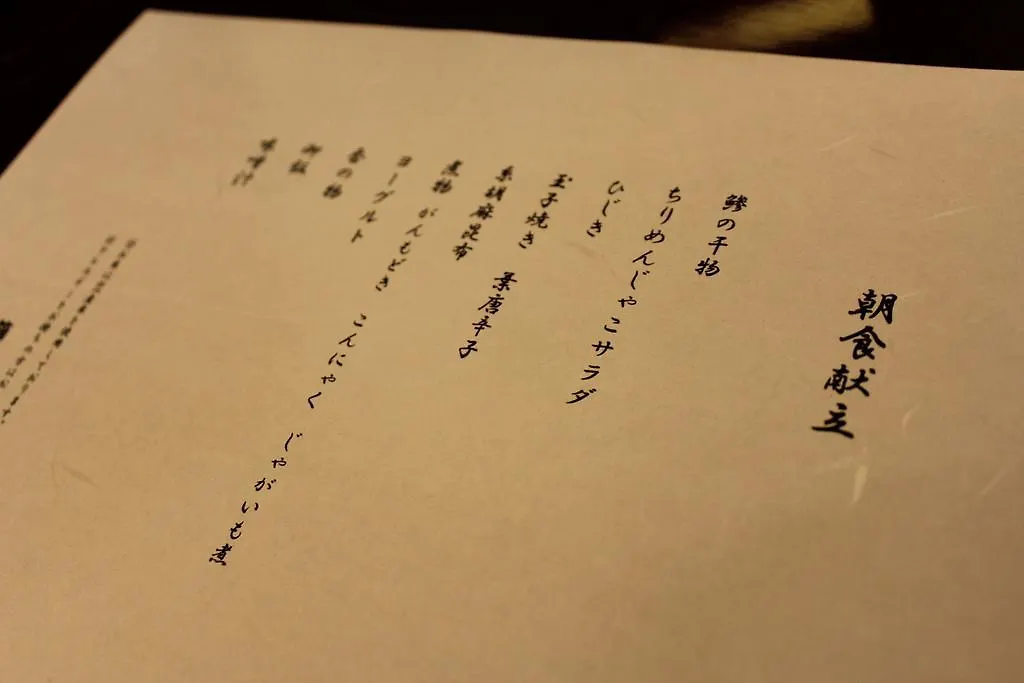 朝食献立
鯵の干物
ちりめんじゃこサラダ
ひじき
玉子焼き
糸胡麻昆布 葉唐辛子
煮物 がんもどき こんにゃく じゃがいも煮
ヨーグルト
香の物
御飯
味噌汁